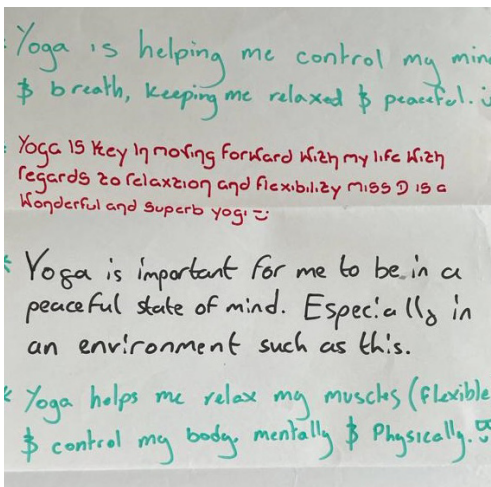 Yoga is helping me control my mind
$ breath, keeping me relaxed $ peaceful.
Yoga is key in moving forward with my life with
regards to relaxtion and flexibility miss D is a
wonderful and superb yogi
* Yoga is important for me to be in a
peaceful state of mind. Especially in
an environment such as this.
* Yoga helps me relax my muscles (flexible
$ control my body, mentally $ Physically.